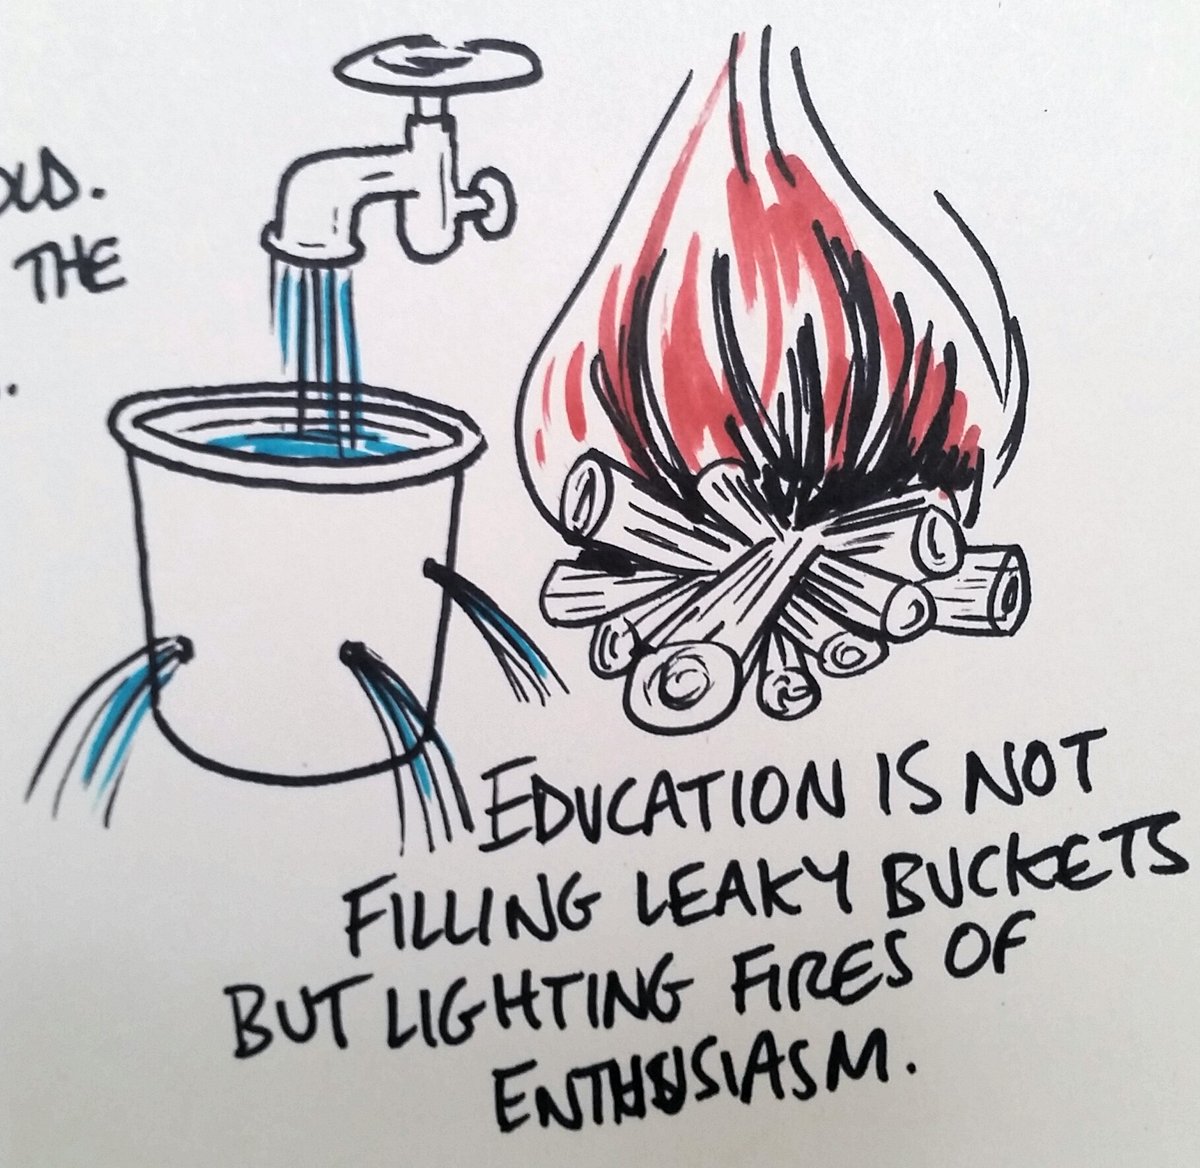 THE
EDUCATION IS NOT
FILLING LEAKY BUCKETS
BUT LIGHTING FIRES OF
ENTHUSIASM.